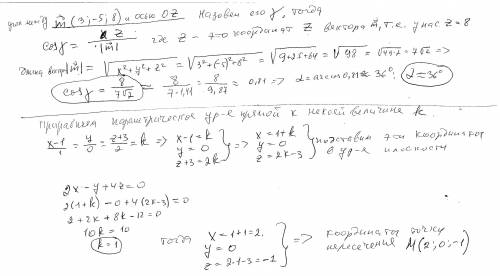 угол между m̄(3;-5;8) и осью OZ Назовем его γ, тогда
cosγ = z / |m̄| где z - это координата z вектора m̄, т.е. у нас z = 8
Длина вектора |m̄| = √(x²+y²+z²) = √(3²+(-5)²+8²) = √(9+25+64) = √98 = √(49·2) = 7√2 =>
cosγ = 8/7√2 = 8/7·1,41 = 8/9,87 = 0,81 => α = arccos 0,81 ≈ 36°; α = 36°
Приравняем параметрическое ур-е прямой к некой величине k.
x-1/1 = y/0 = z+3/2 = k => x-1=k y=0 z+3=2k } => x=1+k y=0 z=2k-3 } подставим эти координаты в ур-е плоскости
2x-y+4z=0
2(1+k)-0+4(2k-3)=0
2+2k+8k-12=0
10k=10
k=1 тогда x=1+1=2, y=0 z=2·1-3=-1 } => координаты точки пересечения M(2;0;-1)